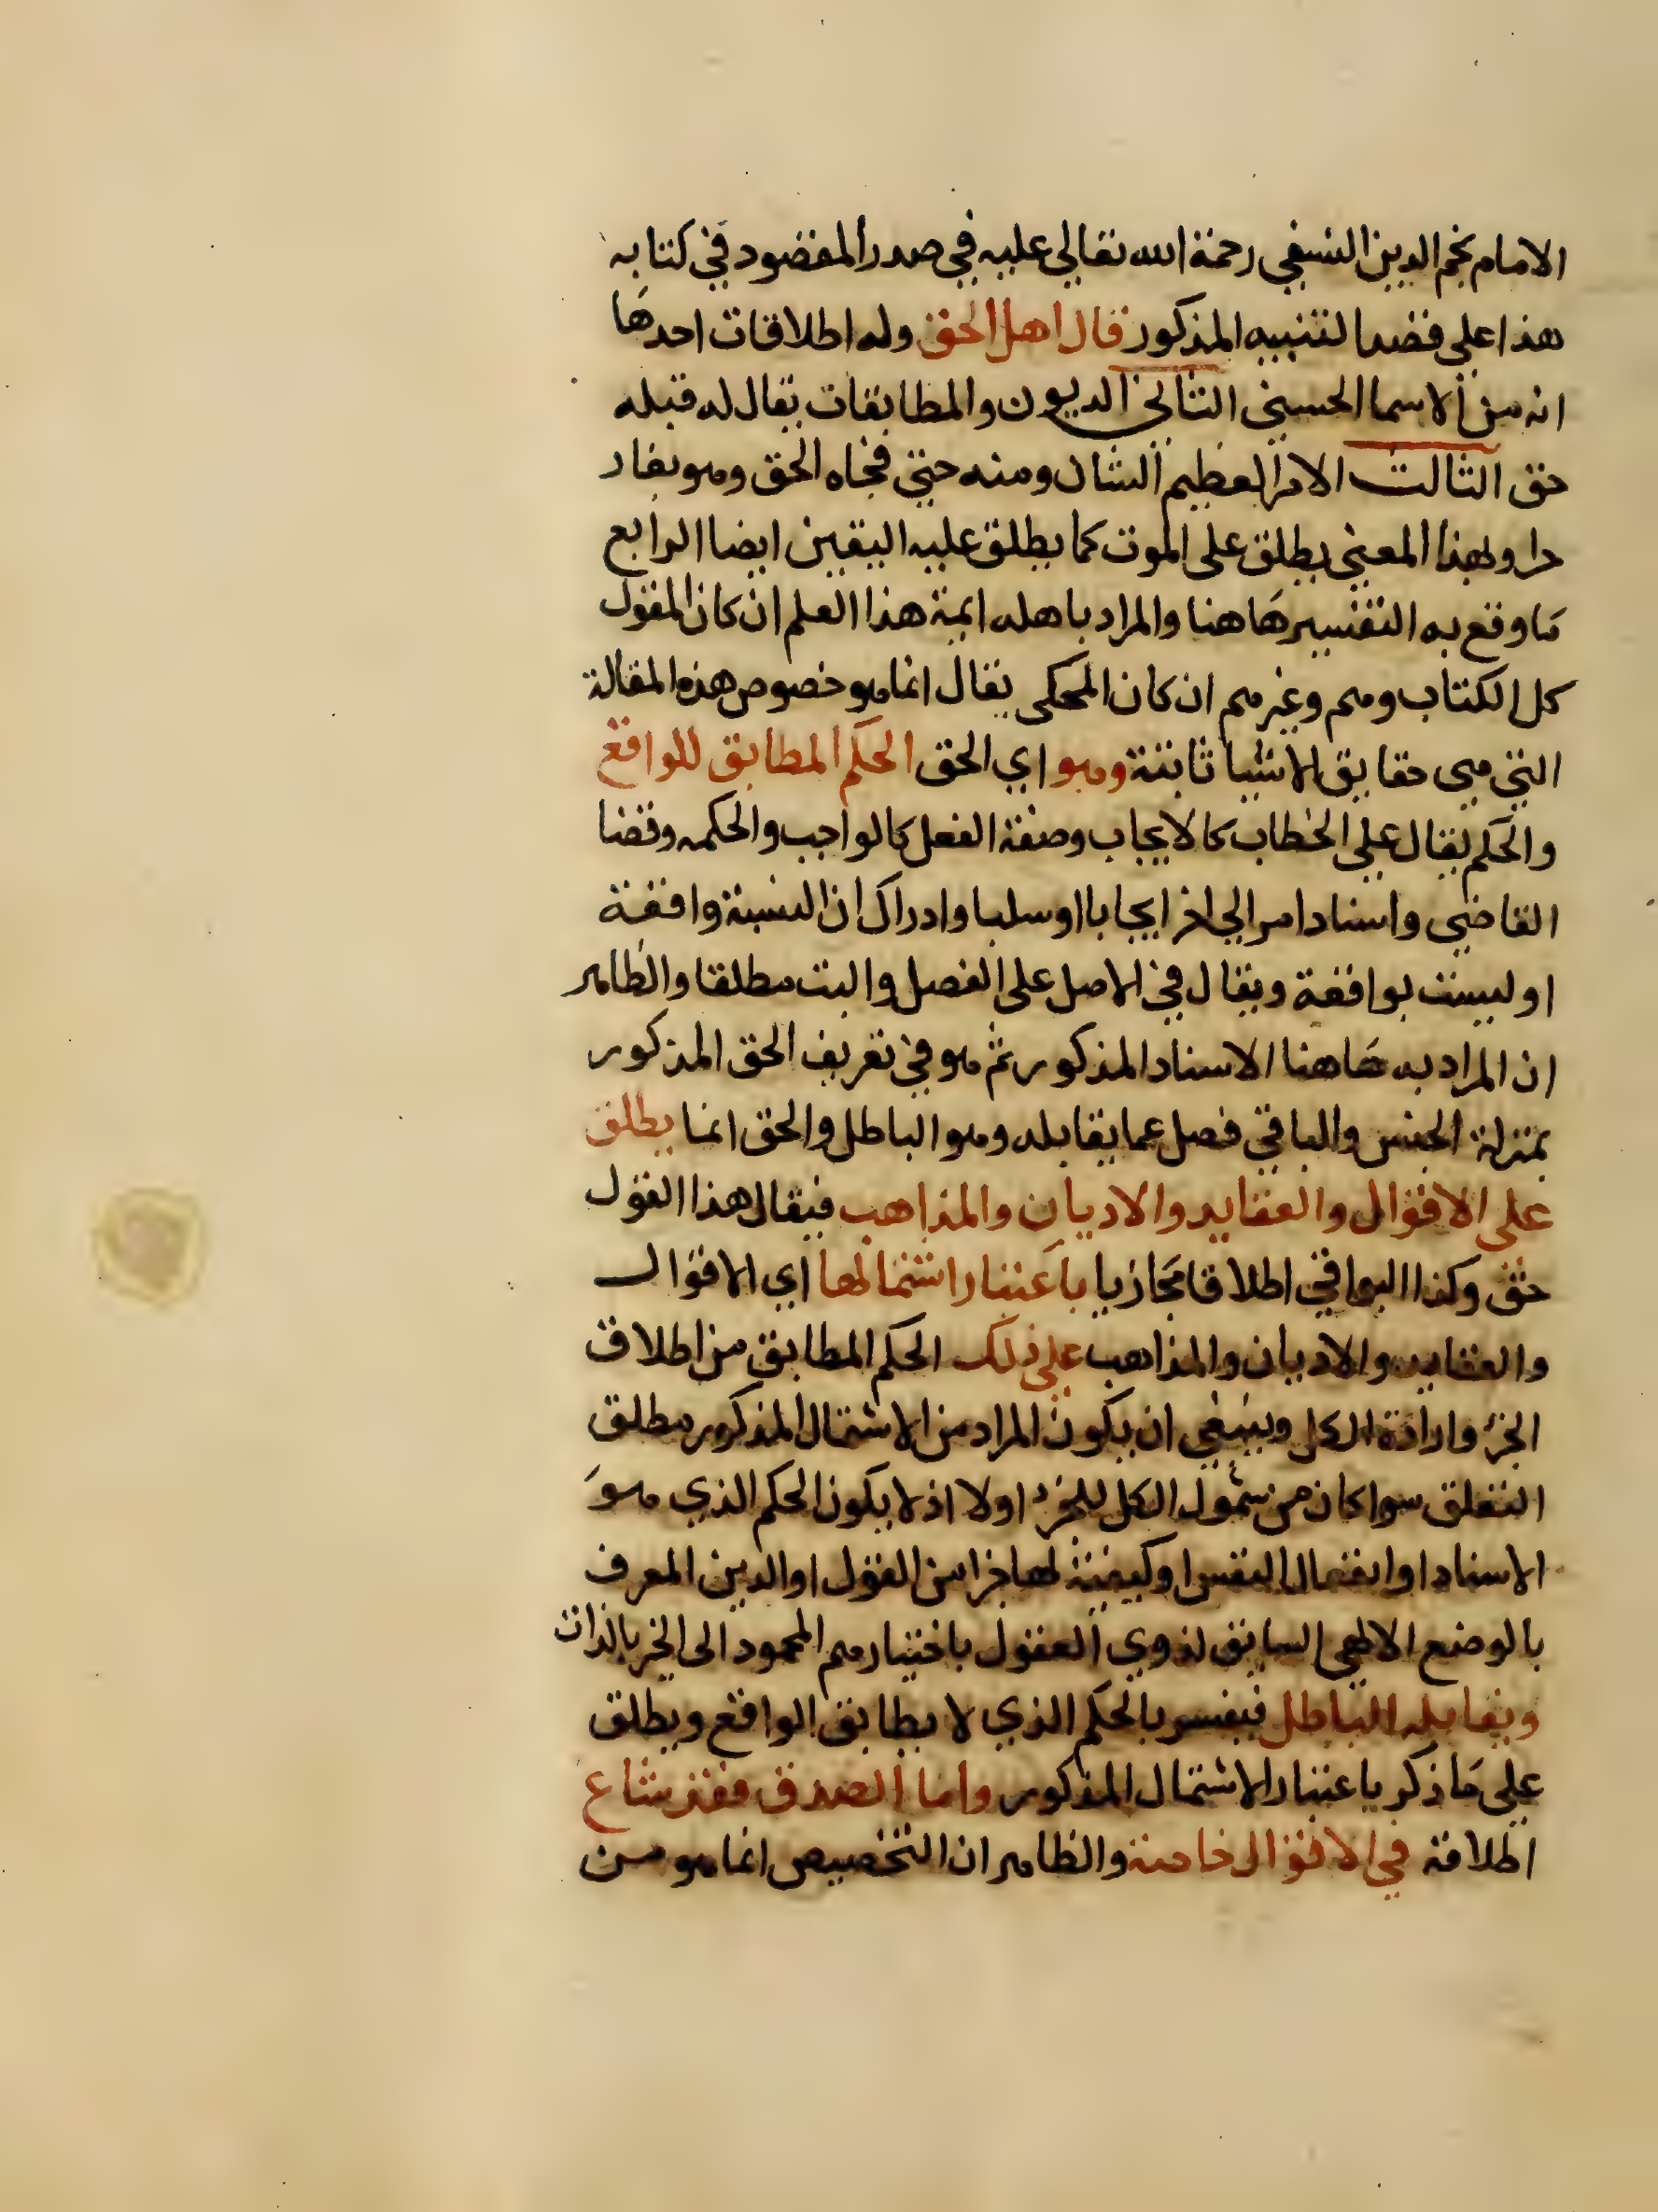 الامام نجم الدين النسفي رحمة الله تعالى عليه في صدر المقصود في كتابه
هذا على قصد التنبيه المذكور قال اهل الحق وله اطلاقات احدها
انه من الاسما الحسنى الثاني الديون والمطابقات يقال له قبله
حق الثالث الامر العظيم الشان ومنه حتى فجاه الحق وهو بغار
حرا وبهذا المعنى يطلق على الموت كما يطلق عليه اليقين ايضا الرابع
ما وقع به التفسير هاهنا والمراد باهله ايمة هذا العلم ان كان المقول
كل الكتاب وهم وغيرهم ان كان المحكي يقال انما هو خصوص هذه المقالة
التي هي حقايق الاشيا ثابتة وهو اي الحق الحكم المطابق للواقع
والحكم يقال على الخطاب كالايجاب وصفة الفعل كالواجب والحكمه وقضا
القاضي واسناد امر الى اخر ايجابا او سلبا وادراك ان النسبة واقعة
او ليست بواقعة ويقال في الاصل على الفصل والبت مطلقا والظاهر
ان المراد به هاهنا الاسناد المذكور ثم هو في تعريف الحق المذكور
بمنزلة الجنس والباقي فصل عما يقابله وهو الباطل والحق انما يطلق
على الاقوال والعقايد والاديان والمذاهب فيقال هذا القول
حق وكذا البواقي اطلاقا مجازيا باعتبار اشتمالها اي الاقوال
والعقايد والاديان والمذاهب على ذلك الحكم المطابق من اطلاق
الجزء وارادة الكل وينبغي ان يكون المراد من الاشتمال المذكور مطلق
التعلق سوا كان من شمول الكل للجزء اولا اذ لا يكون الحكم الذي هو
الاسناد او انفعال النفس او كيفية لها جزا من القول او الدين المعرف
بالوضع الالهي السابق لذوي العقول باختيارهم المحمود الى الخير بالذات
ويقابله الباطل فيفسر بالحكم الذي لا يطابق الواقع ويطلق
على ما ذكر باعتبار الاشتمال المذكور واما الصدق فقد شاع
اطلاقه في الاقوال خاصة والظاهر ان التخصيص انما هو من